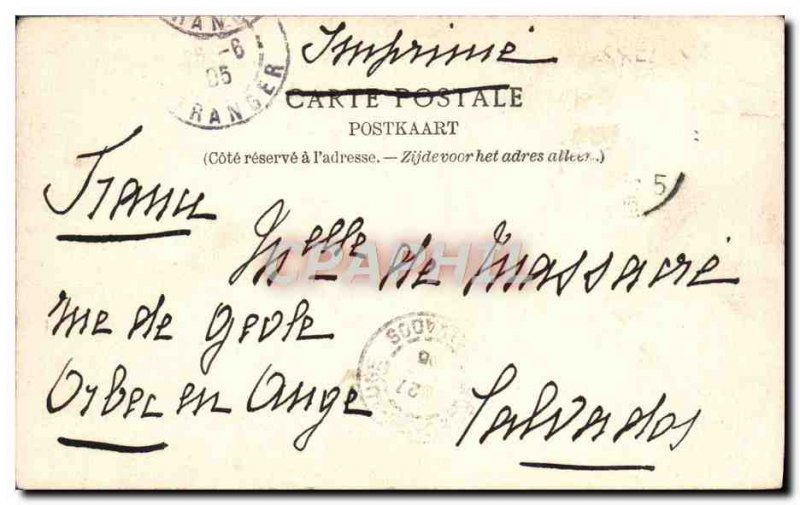 Imprimé
CARTE POSTALE
POSTKAART
(Côté réservé à l'adresse. — Zijde voor het adres alleen.)
France
Melle de Massacré
rue de Geole
Orbec en Auge
Calvados
6
05
TRANGER
CPAPHIL
27
5